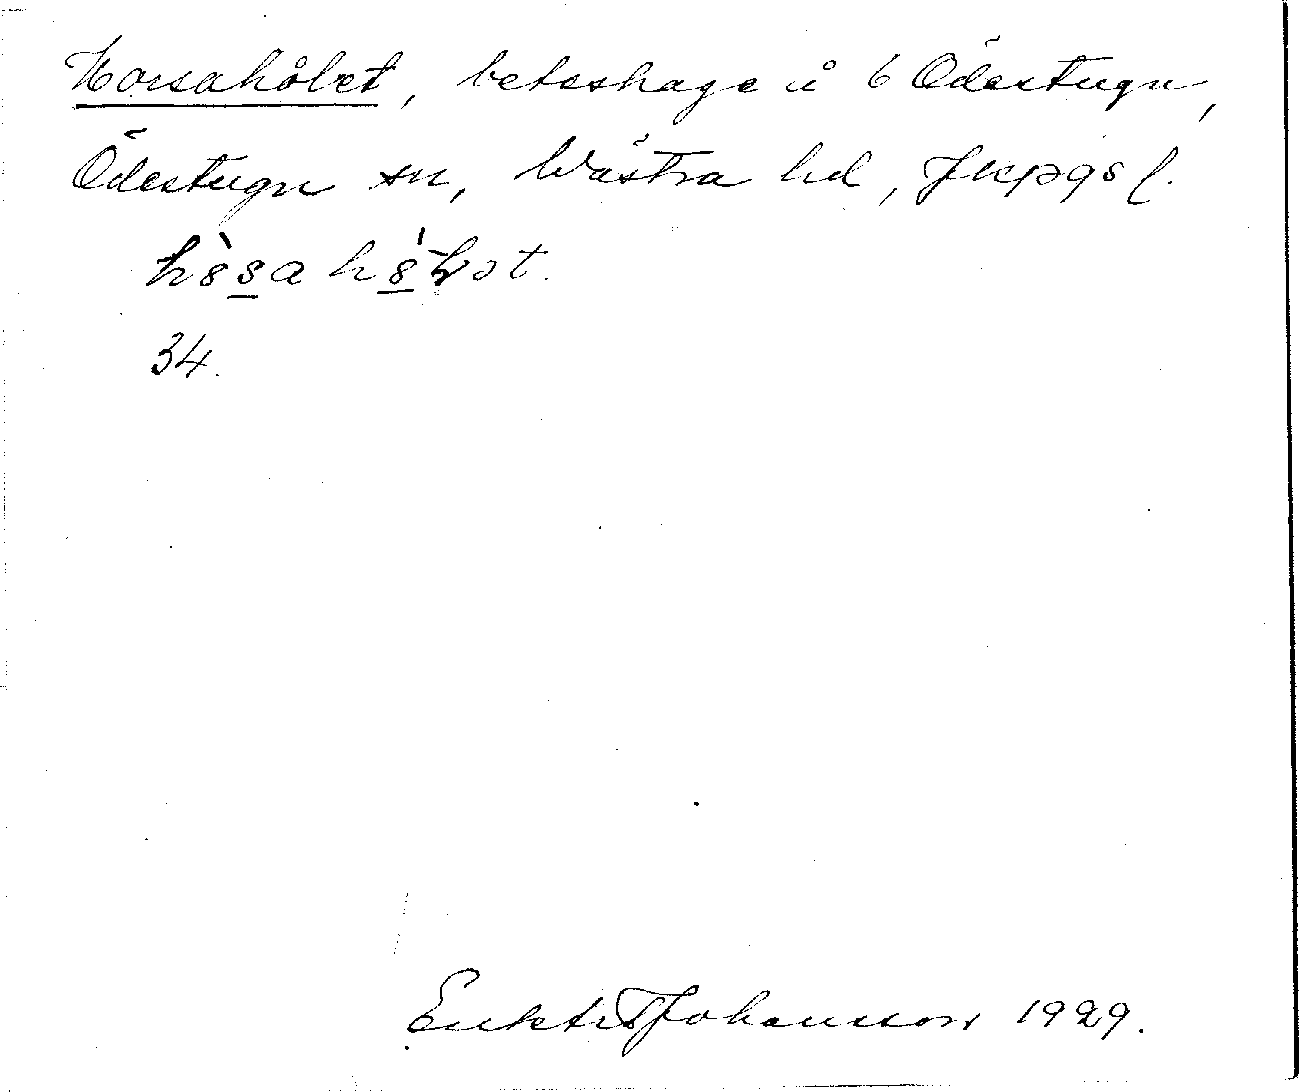 Horsahålet, beteshage å 6 Ödestugu,
Ödestugu sn, Västra hd, Jkpgs l.
34.
Johansson 1929.